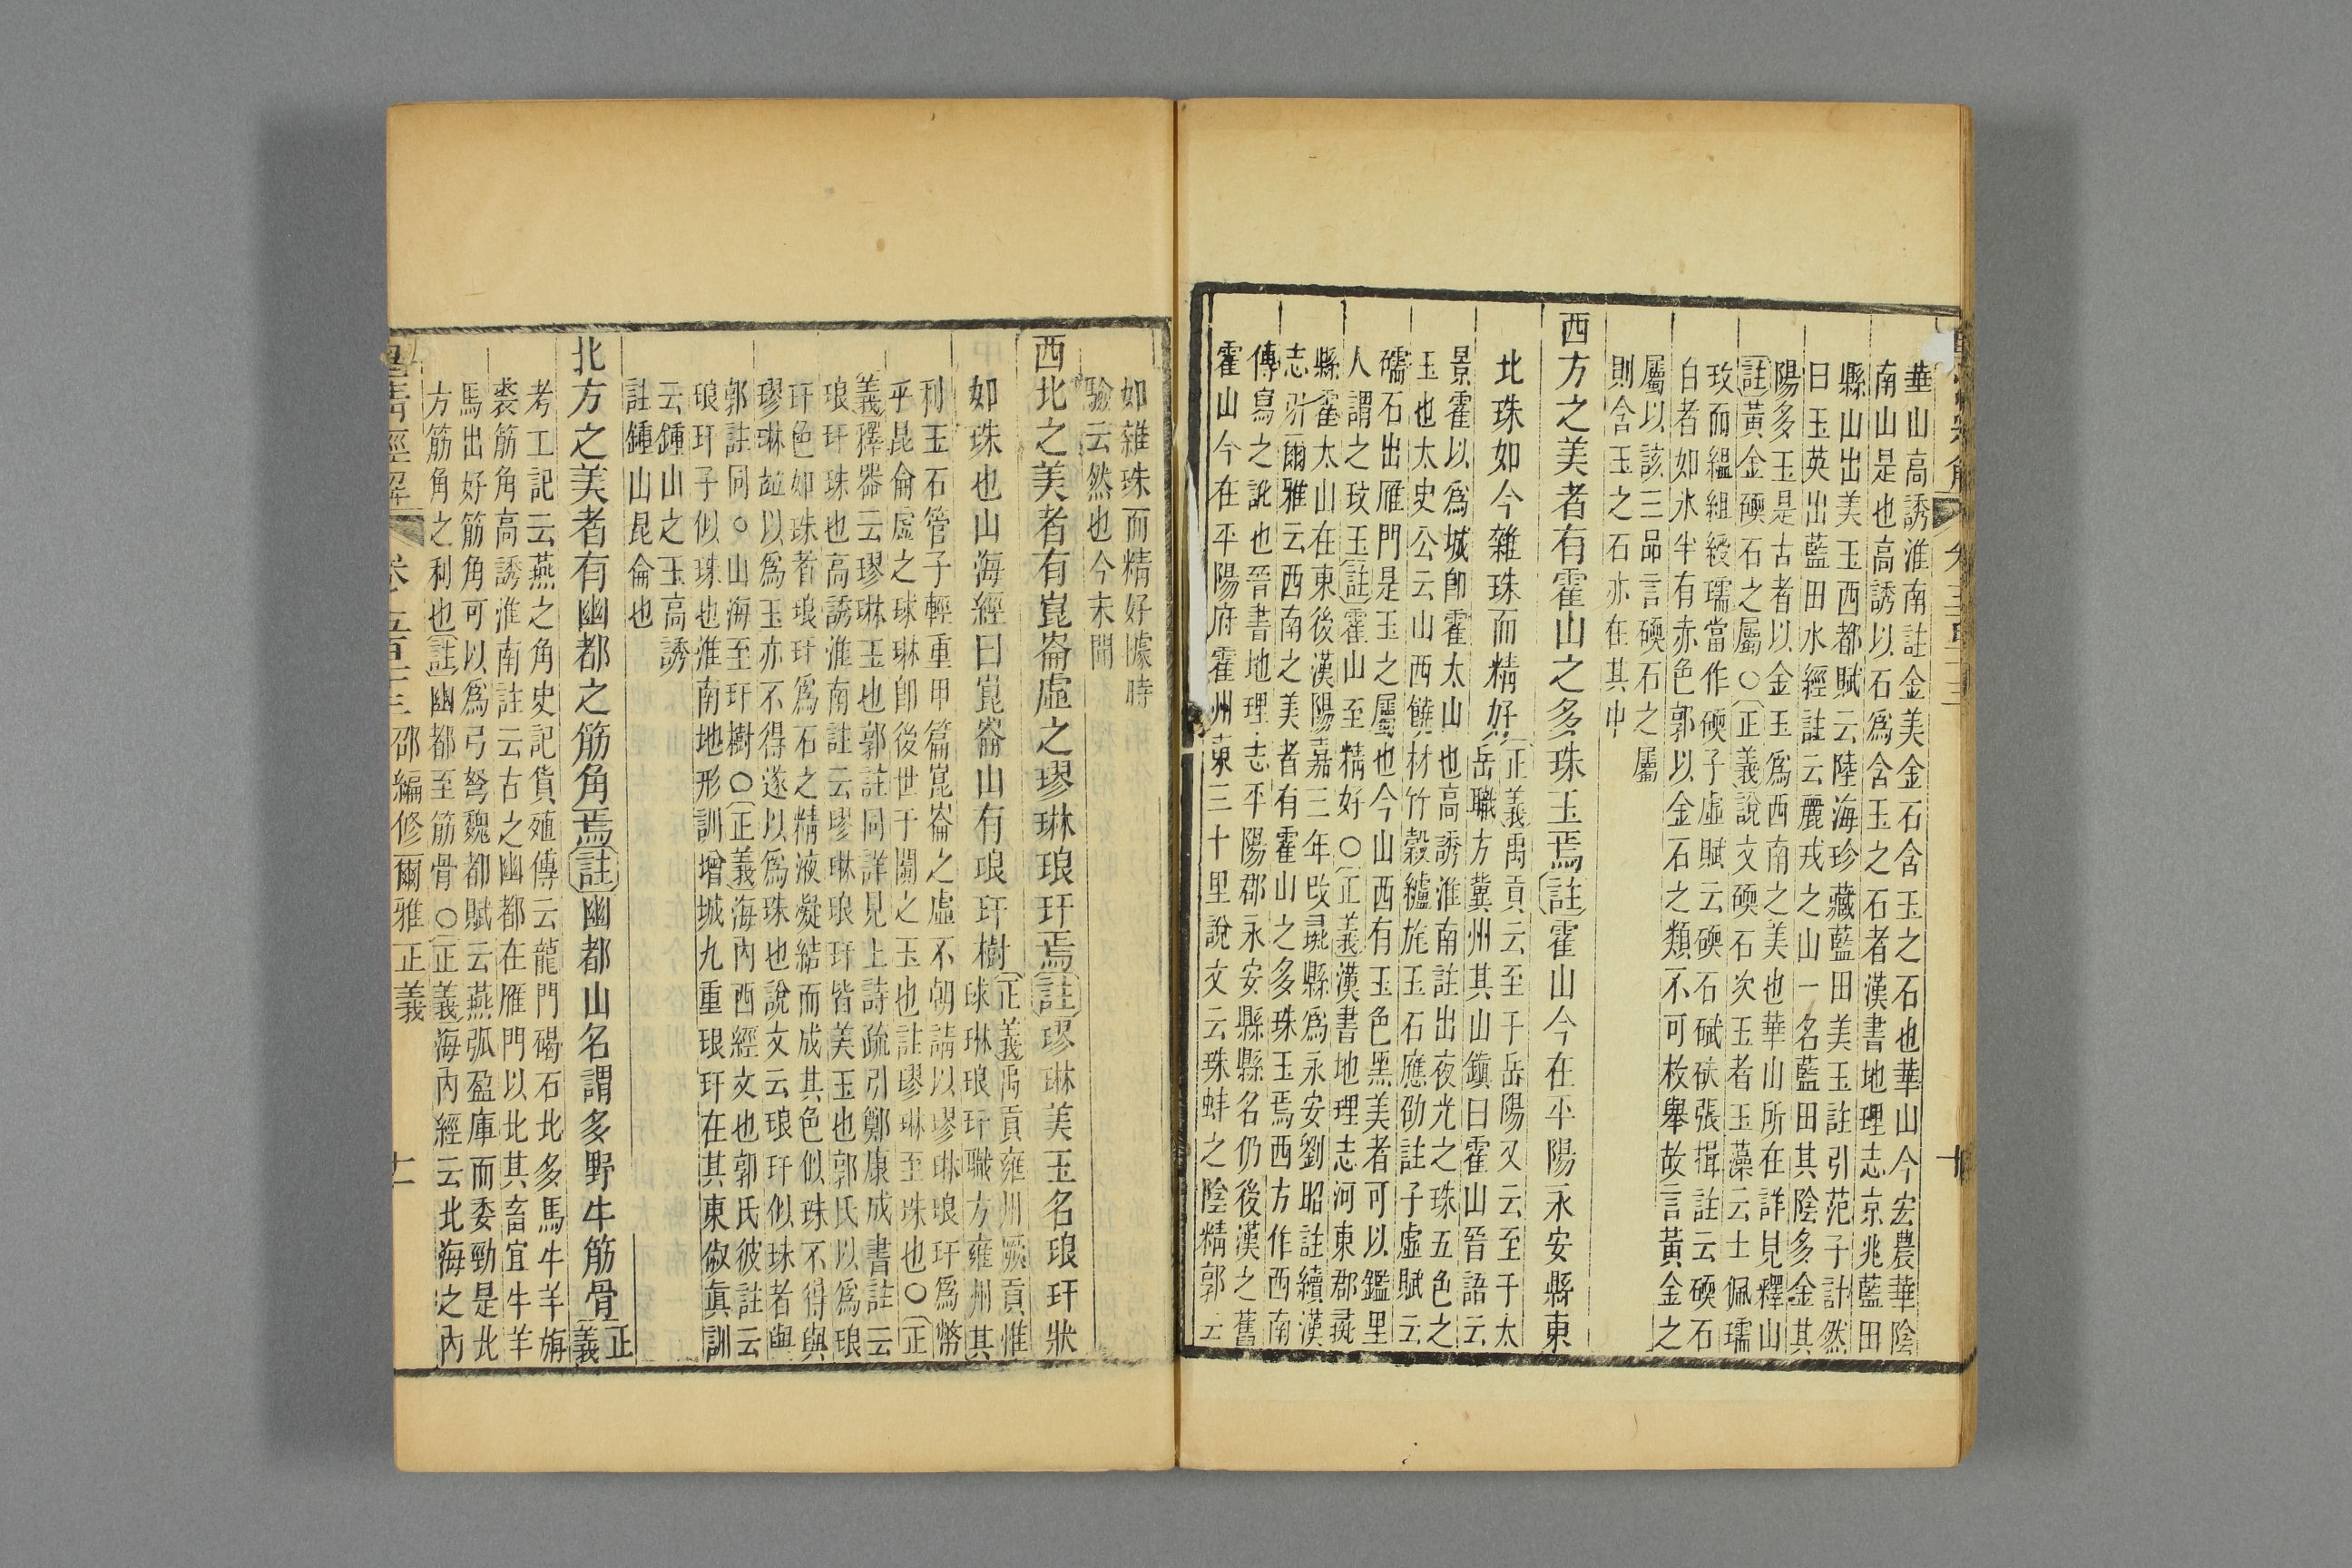 華山高誘淮南註金美金石含玉之石也華山今宏農華陰
南山是也高誘以石爲含玉之石者漢書地理志京兆藍田
縣山出美玉西都賦云陸海珍藏藍田美玉註引范子計然
曰玉英出藍田水經註云麗戎之山一名藍田其陰多金其
陽多玉是古者以金玉爲西南之美也華山所在詳見釋山
註黃金礝石之屬○正義說文礝石次玉者玉藻云士佩瓀
玫而縕組綬瓀當作礝子虛賦云礝石碔砆張揖註云礝石
白者如氷半有赤色郭以金石之類不可枚舉故言黃金之
屬以該三品言礝石之屬
則含玉之石亦在其中
西方之美者有霍山之多珠玉焉註霍山今在平陽永安縣東
北珠如今雜珠而精好正義禹貢云至于岳陽又云至于太
岳職方冀州其山鎮曰霍山晉語云
景霍以爲城卽霍太山也高誘淮南註出夜光之珠五色之
玉也太史公云山西饒材竹穀纑旄玉石應劭註子虛賦云
礝石出雁門是玉之屬也今山西有玉色黑美者可以鑑里
人謂之玫玉註霍山至精好○正義漢書地理志河東郡彘
縣霍太山在東後漢陽嘉三年改彘縣爲永安劉昭註續漢
志引爾雅云西南之美者有霍山之多珠玉焉西方作西南
傳寫之訛也晉書地理志平陽郡永安縣縣名仍後漢之舊
霍山今在平陽府霍州東三十里說文云珠蚌之陰精郭云
如雜珠而精好據時
驗云然也今未聞
西北之美者有崑崙虛之璆琳琅玕焉註璆琳美玉名琅玕狀
如珠也山海經曰崑崙山有琅玕樹正義禹貢雍州厥貢惟
球琳琅玕職方雍州其
利玉石管子輕重甲篇崑崙之虛不朝請以璆琳琅玕爲幣
乎昆侖虛之球琳卽後世于闐之玉也註璆琳至珠也○正
義釋器云璆琳玉也郭註同詳見上詩疏引鄭康成書註云
琅玕珠也高誘淮南註云璆琳琅玕皆美玉也郭氏以爲琅
玕色如珠者琅玕爲石之精液凝結而成其色似珠不得與
璆琳竝以爲玉亦不得遂以爲珠也說文云琅玕似珠者與
郭註同○山海至玕樹○正義海內西經文也郭氏彼註云
琅玕子似珠也淮南地形訓增城九重琅玕在其東俶眞訓
云鍾山之玉高誘
註鍾山昆侖也
北方之美者有幽都之筋角焉註幽都山名謂多野牛筋骨正
義
考工記云燕之角史記貨殖傳云龍門碣石北多馬牛羊旃
裘筋角高誘淮南註云古之幽都在雁門以北其畜宜牛羊
馬出好筋角可以爲弓弩魏都賦云燕弧盈庫而委勁是此
方筋角之利也註幽都至筋骨○正義海內經云北海之內
皇清經解 卷五百十三 邵編修爾雅正義 十一